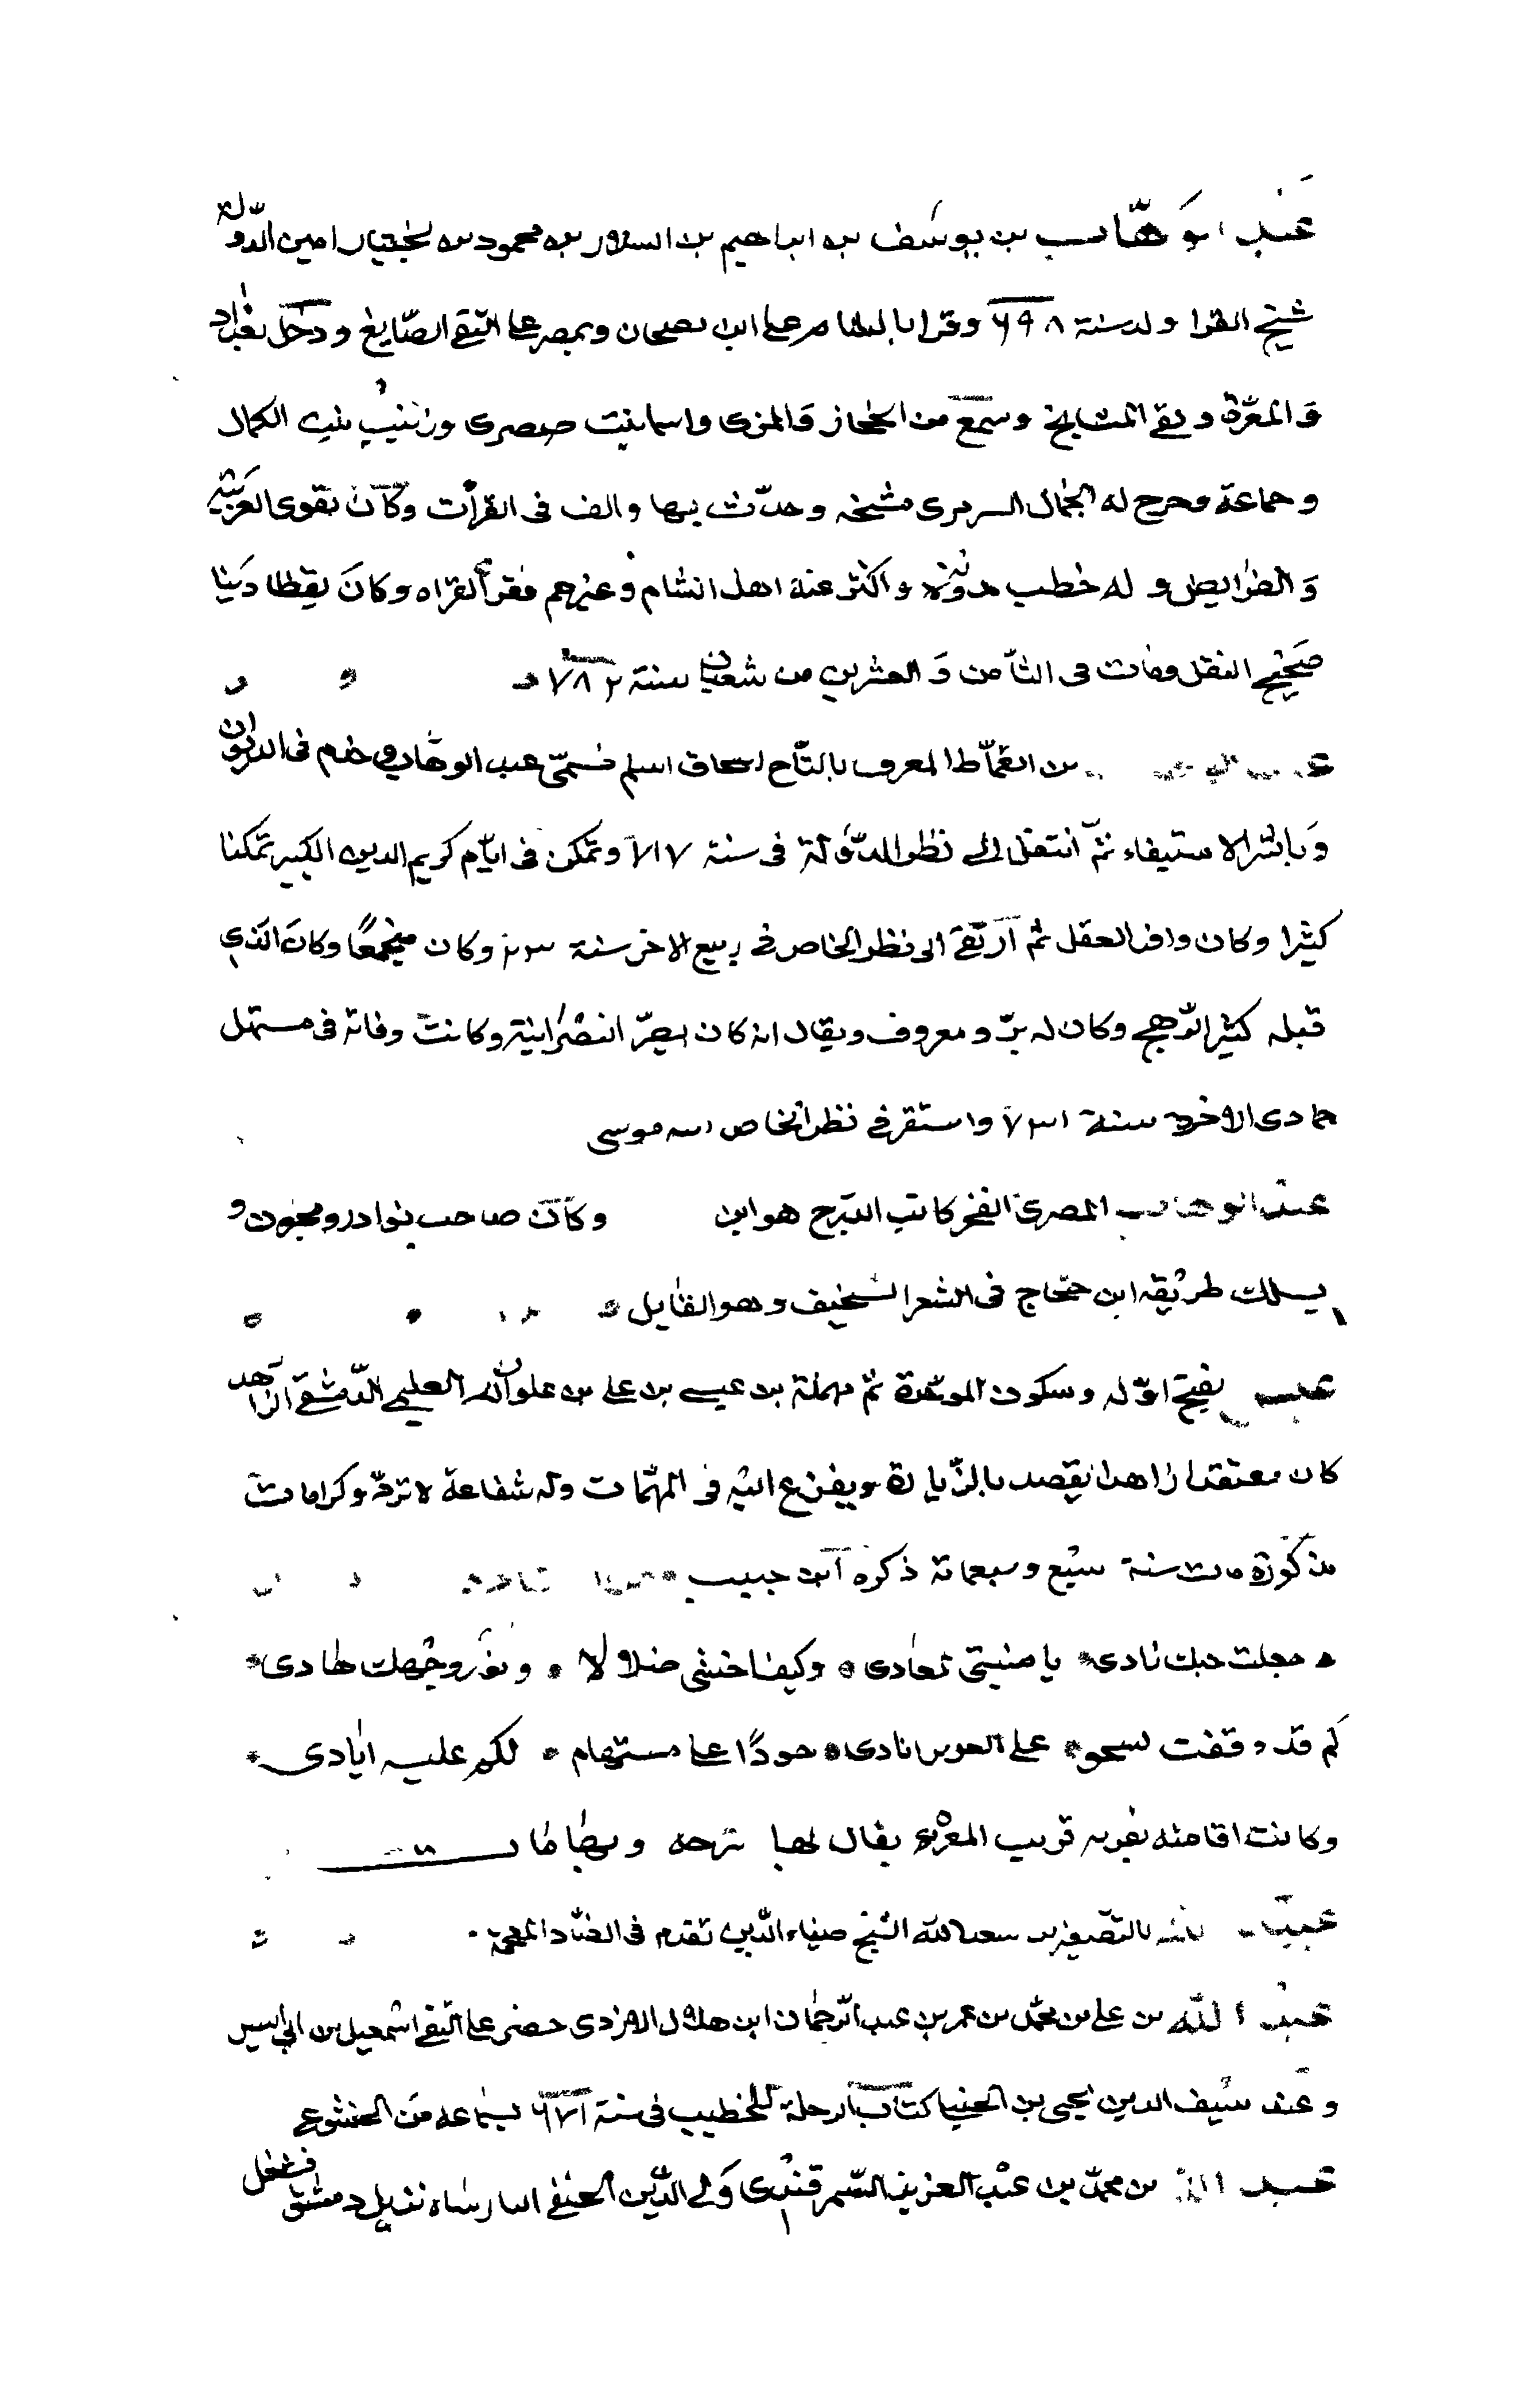 عبد الوهاب بن يوسف بن ابراهيم بن السلار بن محمود بن بختيار امين الدولة
شيخ القرا ولد سنة ٦٩٨ وقرا بالشام على ابن بصحان وبمصر على التقي الصايغ ودخل بغداد
والمعرة ولقي المشايخ وسمع من الحجاز والمزى واسما بنت صصرى وزينب بنت الكمال
وجماعة وخرج له الجمال السرمرى مشيخه وحدث بها والف فى القرات وكان يقوى العربية
والفرايض وله خطب مدونة واكثر عنه اهل الشام وغيرهم فقرا القراه وكان يقظا دينا
صحيح النقل ومات فى الثامن والعشرين من شعبان سنة ٧٨٢
عبد الوهاب بن القماط المعروف بالتاج اسحاق اسلم فسمى عبد الوهاب وخدم فى الديوان
وباشر الاستيفاء ثم انتقل الى نظر الدولة فى سنة ٧١٧ وتمكن فى ايام كريم الدين الكبير تمكنا
كثيرا وكان وافر العقل ثم ارتقى الى نظر الخاص فى ربيع الاخر سنة ٢٣ وكان منجمعا وكان الذى
قبله كثير الرهج وكان له بر ومعروف ويقال انه كان يسر النصرانية وكانت وفاته فى مستهل
جمادى الاخرة سنة ٧٣١ واستقر فى نظر الخاص ابنه موسى
عبد الوهاب المصرى الفخر كاتب الدرج هو ابن وكان صاحب نوادر ومجون و
يسلك طريقه ابن حجاج فى الشعر السخيف وهو القايل
عبس بفتح اوله وسكون الموحدة ثم مهملة بن عيسى بن على بن علوان العليمى الدمشقى الزاهد
كان معتقدا زاهدا يقصد بالزيارة ويفزع اليه فى المهمات وله شفاعة لا ترد وكرامات
مذكورة مات سنة سبع وسبعمائة ذكره ابن حبيب
حبك نادى يا منيتى تعادى وكيف اخشى ضلالا ونور وجهك هادى
كم قد وقفت على انادى جودًا على مستهام لكم عليه ايادى
وكانت اقامته بقرية قريب المعرة يقال لها سرجه وبها مات
عبيد الله بالتصغير بن سعد الله الشيخ ضياء الدين تقدم فى الضاد المعجمة
عبد الله بن على بن محمد بن عمر بن عبد الرحمان ابن هلال الازدى حضر على التقى اسمعيل بن ابى اليسر
وعند سيف الدين يحيى بن الحنبلى كتاب الرحلة للخطيب فى سنة ٦٧١ بسماعه من الخشوعى
عبيد الله بن محمد بن عبد العزيز السمرقندى ولى الدين الحنفى نزيل دمشق فشغل